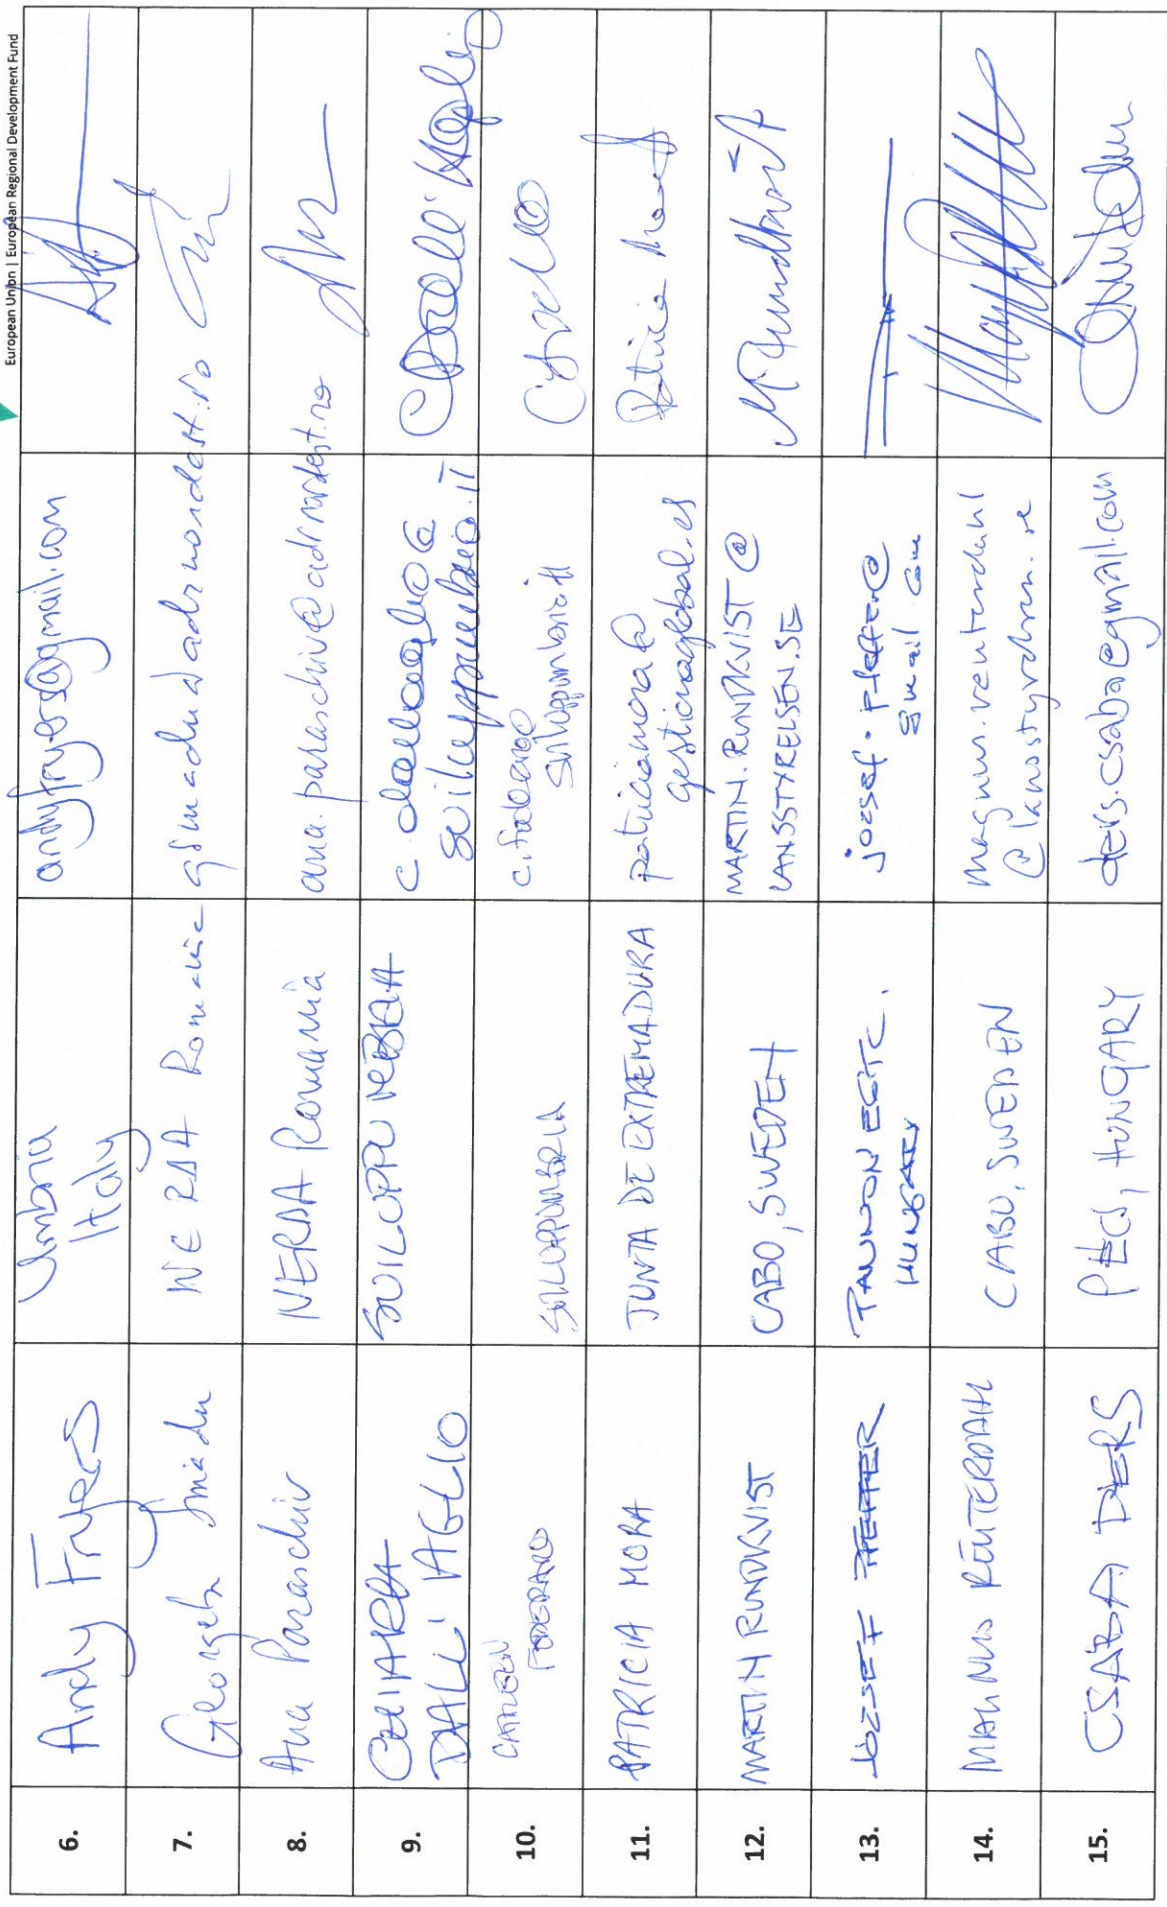 European Union | European Regional Development Fund
6.
Andy Fryers
Umbria
Italy
andyfryers@gmail.com
7.
Georgeta Smadu
NERDA Romania
8.
Ana Paraschiv
NERDA Romania
ana.paraschiv@adrnordest.ro
9.
CHIARA
DALL'AGLIO
SVILUPPUMBRIA
c.dallaglio@
sviluppumbria.it
10.
CARMEN
FODERARO
SVILUPPUMBRIA
c.foderaro@
sviluppumbria.it
11.
PATRICIA MORA
JUNTA DE EXTREMADURA
patriciamora@
gestionaglobal.es
Patricia Mora
12.
MARTIN RUNDKVIST
CABO, SWEDEN
MARTIN.RUNDKVIST@
LANSSTYRELSEN.SE
M Rundkvist
13.
JÓZSEF PFEFFER
PANNON EGTC.
HUNGARY
jozsef.pfeffer@
gmail.com
14.
MAGNUS REUTERDAHL
CABO, SWEDEN
magnus.reuterdahl
@lansstyrelsen.se
15.
CSABA DERS
PÉCS, HUNGARY
ders.csaba@gmail.com